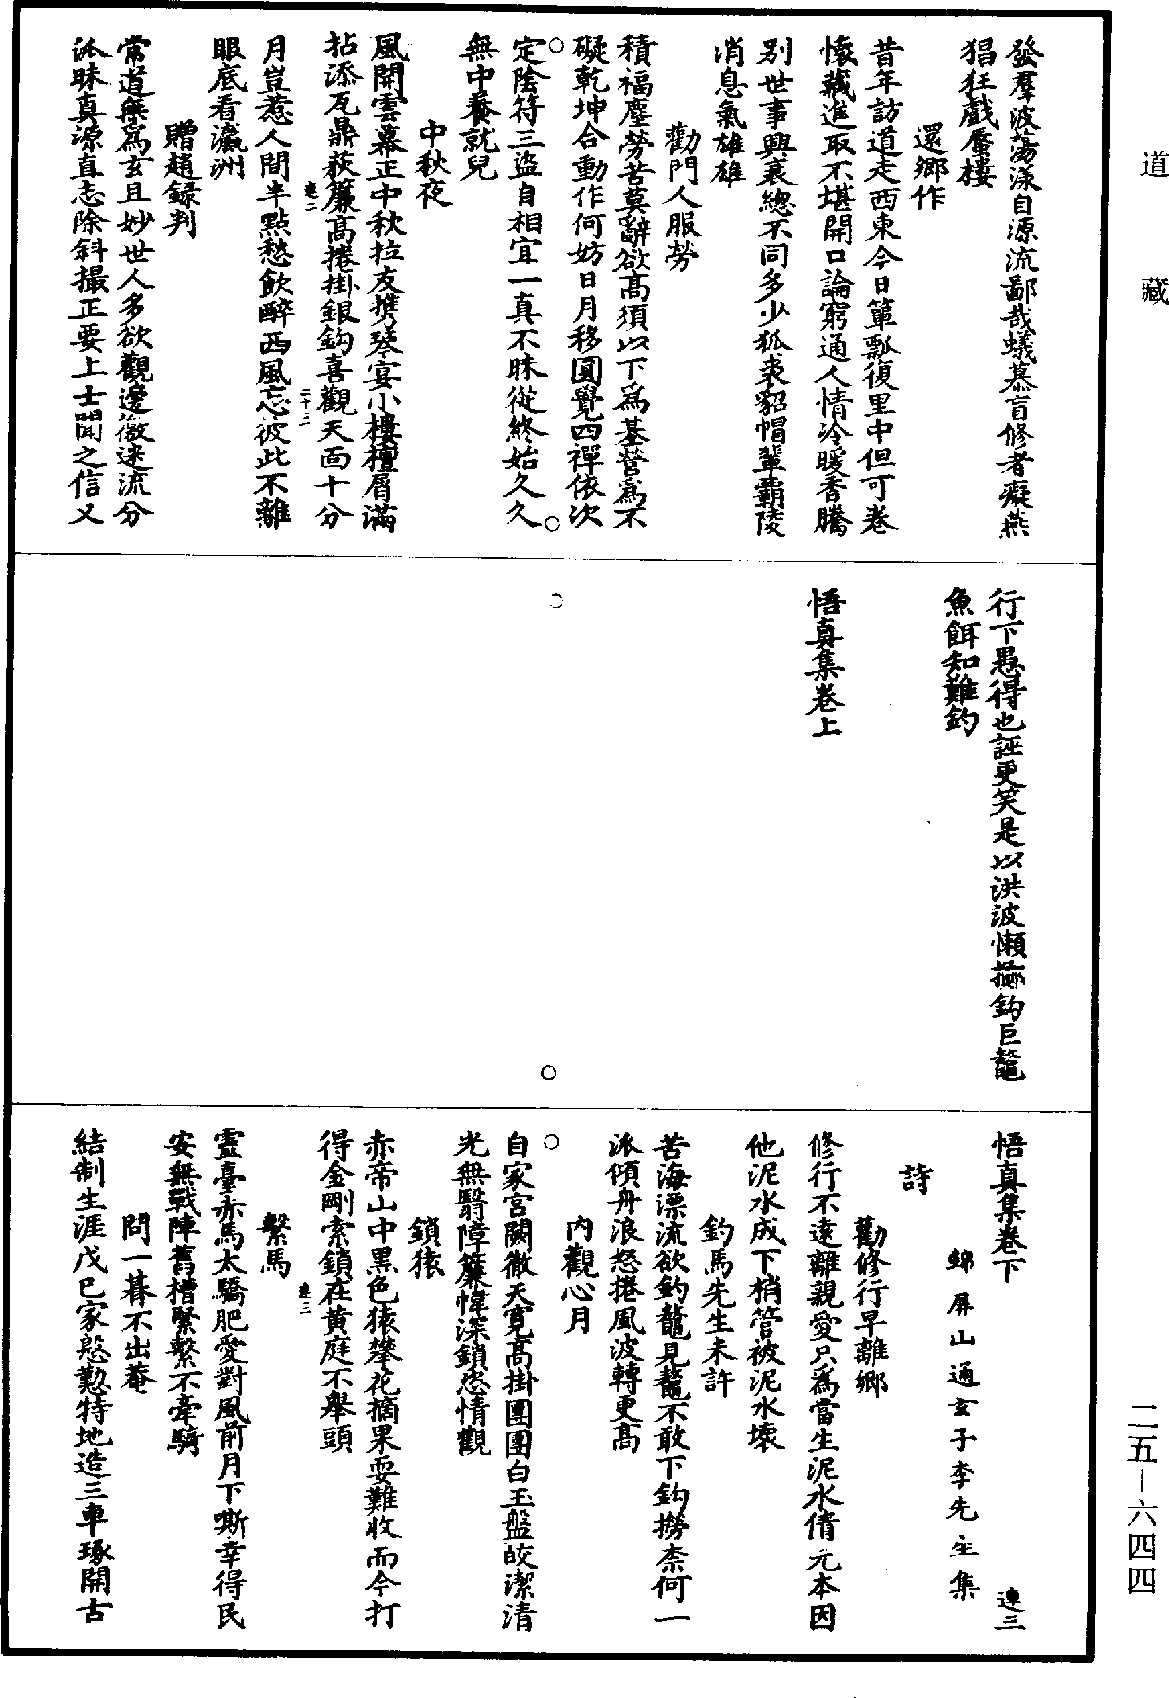 道藏
發羣波蕩漾自源流鄙哉蟻慕盲修者癡燕
猖狂戲蜃樓
還鄉作
昔年訪道走西東今日簞瓢復里中但可卷
懷藏進取不堪開口論窮通人情冷暖香騰
別世事興衰總不同多少狐裘貂帽輩霸陵
消息氣雄雄
勸門人服勞
積福塵勞苦莫辭欲高須以下爲基營爲不
礙乾坤合動作何妨日月移圓覺四禪依次
定陰符三盜自相宜一真不昧從終始久久
無中養就兒
中秋夜
風開雲幕正中秋拉友携琴宴小樓檀屑滿
拈添瓦鼎荻簾高捲掛銀鈎喜觀天面十分
連二
二十二
月豈惹人間半點愁飲醉西風忘彼此不離
眼底看瀛洲
贈趙録判
常道無爲玄且妙世人多欲觀邊徼迷流分
派昧真源直志除斜撮正要上士聞之信又
行下愚得也誣更笑是以洪波懶擲鈎巨鼇
魚餌知難釣
悟真集卷上
悟真集卷下
連三
錦屏山通玄子李先生集
詩
勸修行早離鄉
修行不遠離親愛只爲當生泥水債元本因
他泥水成下梢管被泥水壞
釣馬先生未許
苦海漂流欲釣鼇見鼇不敢下鈎撈柰何一
派傾舟浪怒捲風波轉更高
內觀心月
自家宮闕徹天寬高掛團團白玉盤皎潔清
光無翳障簾幃深鎖恣情觀
鎖猿
赤帝山中黑色猿攀花摘果耍難收而今打
得金剛索鎖在黃庭不舉頭
連三
繫馬
靈臺赤馬太驕肥愛對風前月下嘶幸得民
安無戰陣舊槽緊繫不牽騎
問一暮不出菴
結制生涯戊己家慇懃特地造三車琢開古
二五—六四四